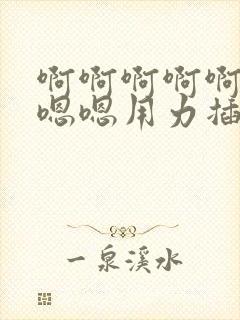 啊啊啊啊啊
嗯嗯用力插
一泉溪水